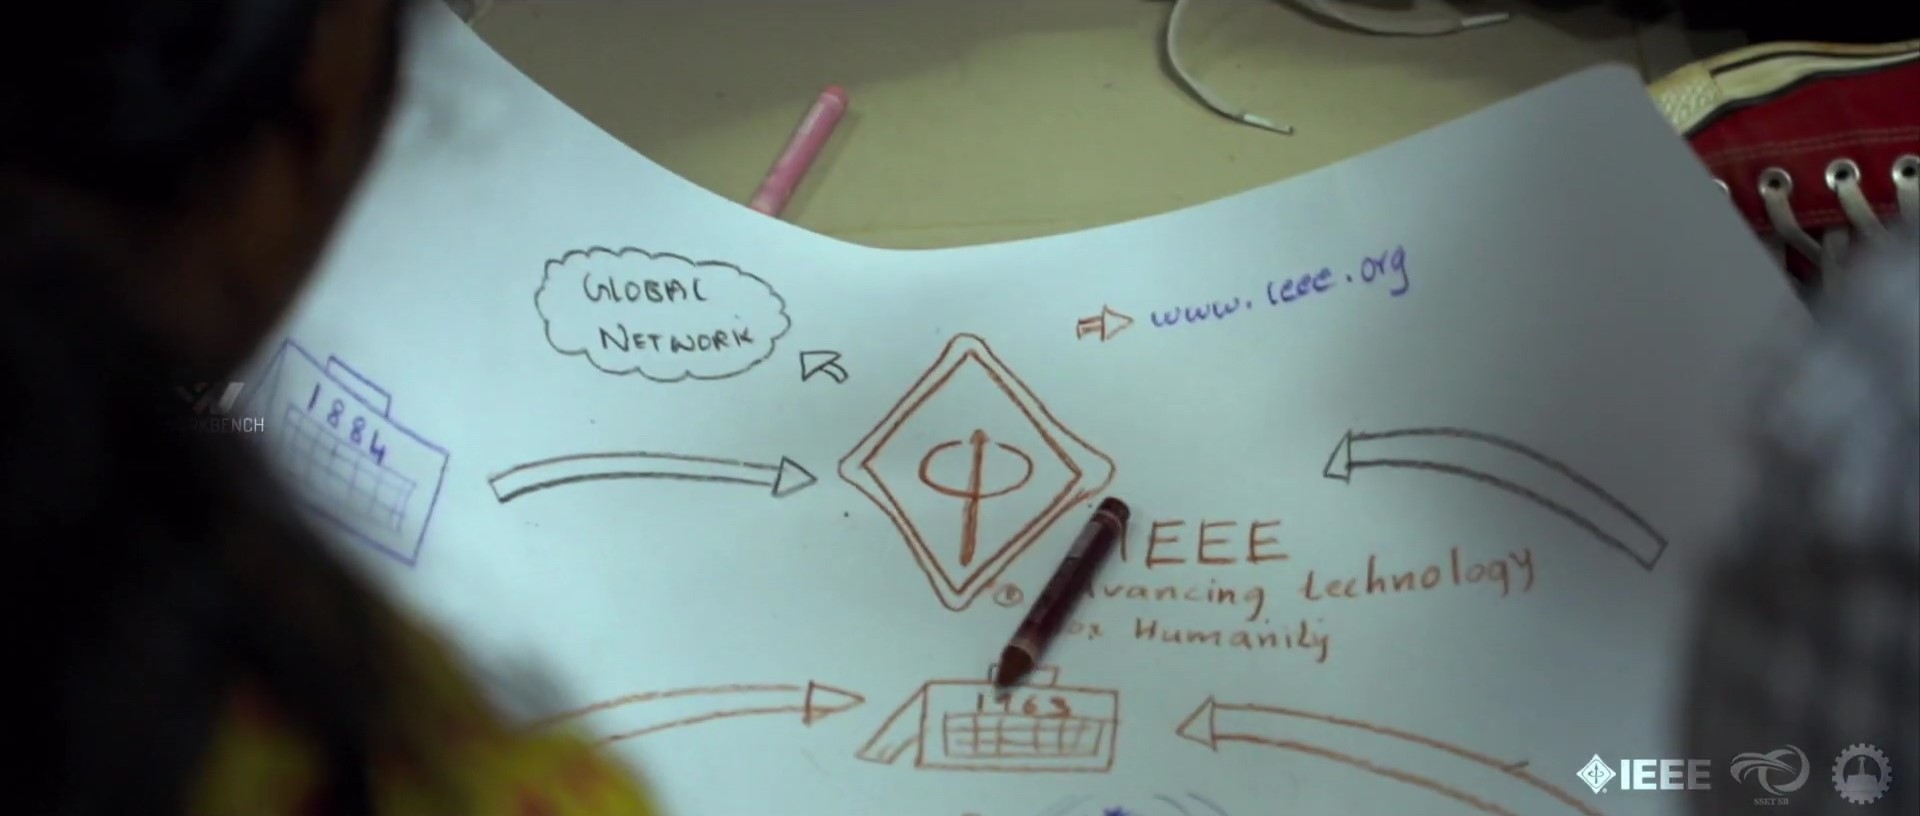 GLOBAL
NETWORK
www.ieee.org
1884
IEEE
technology
Humanity
1963
IEEE
SSET SB